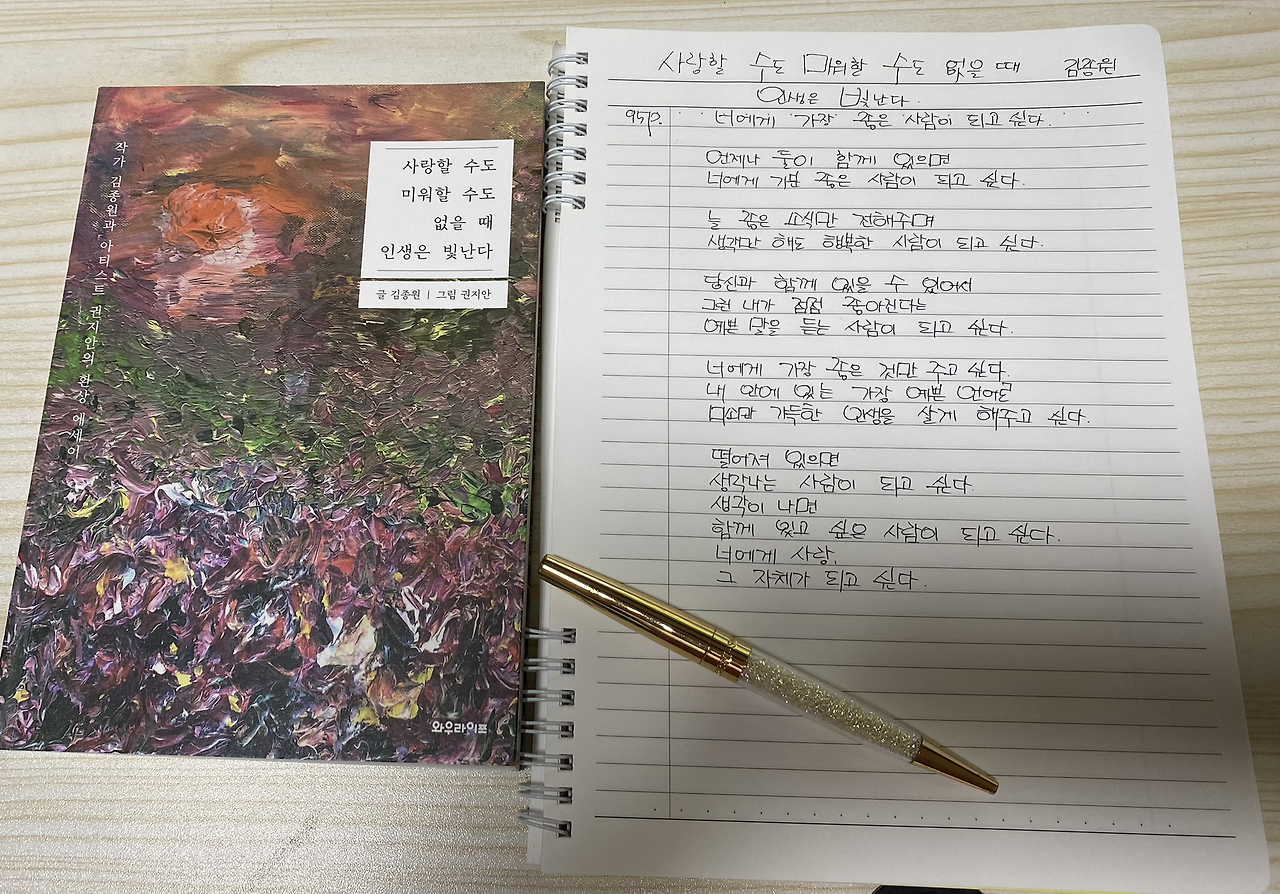 작가 김종원과 아티스트 권지안의 환상 에세이
사랑할 수도
미워할 수도
없을 때
인생은 빛난다
글 김종원 | 그림 권지안
와우라이프
사랑할 수도 미워할 수도 없을 때 김종원
인생은 빛난다.
95p. 너에게 가장 좋은 사람이 되고 싶다.
언제나 둘이 함께 있으면
너에게 기분 좋은 사람이 되고 싶다.
늘 좋은 소식만 전해주며
생각만 해도 행복한 사람이 되고 싶다.
당신과 함께 있을 수 있어서
그런 내가 점점 좋아진다는
예쁜 말을 듣는 사람이 되고 싶다.
너에게 가장 좋은 것만 주고 싶다.
내 안에 있는 가장 예쁜 언어로
미소만 가득한 인생을 살게 해주고 싶다.
떨어져 있으면
생각나는 사람이 되고 싶다.
생각이 나면
함께 있고 싶은 사람이 되고 싶다.
너에게 사랑,
그 자체가 되고 싶다.